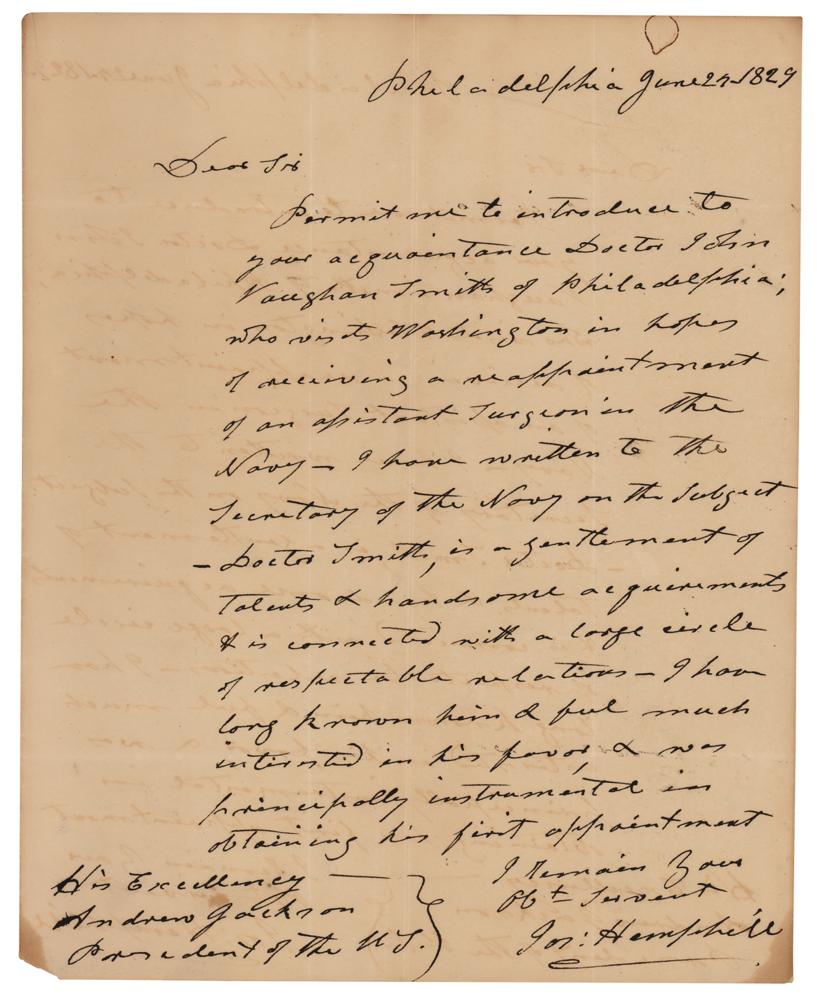 Philadelphia June 27-1829
Dear Sir
Permit me to introduce to
your acquaintance Doctor John
Vaughan Smith of Philadelphia;
who visits Washington in hopes
of receiving a reappointment
of an assistant Surgeon in the
Navy - I have written to the
Secretary of the Navy on the Subject
- Doctor Smith, is a gentlement of
talents & handsome acquirements
& is connected with a large circle
of respectable relations - I have
long known him & feel much
interested in his favor, & was
principally instrumental in
obtaining his first appointment
I Remain Your
Obt Servent
Jos: Hemphill
His Excellency
Andrew Jackson
President of the U S.